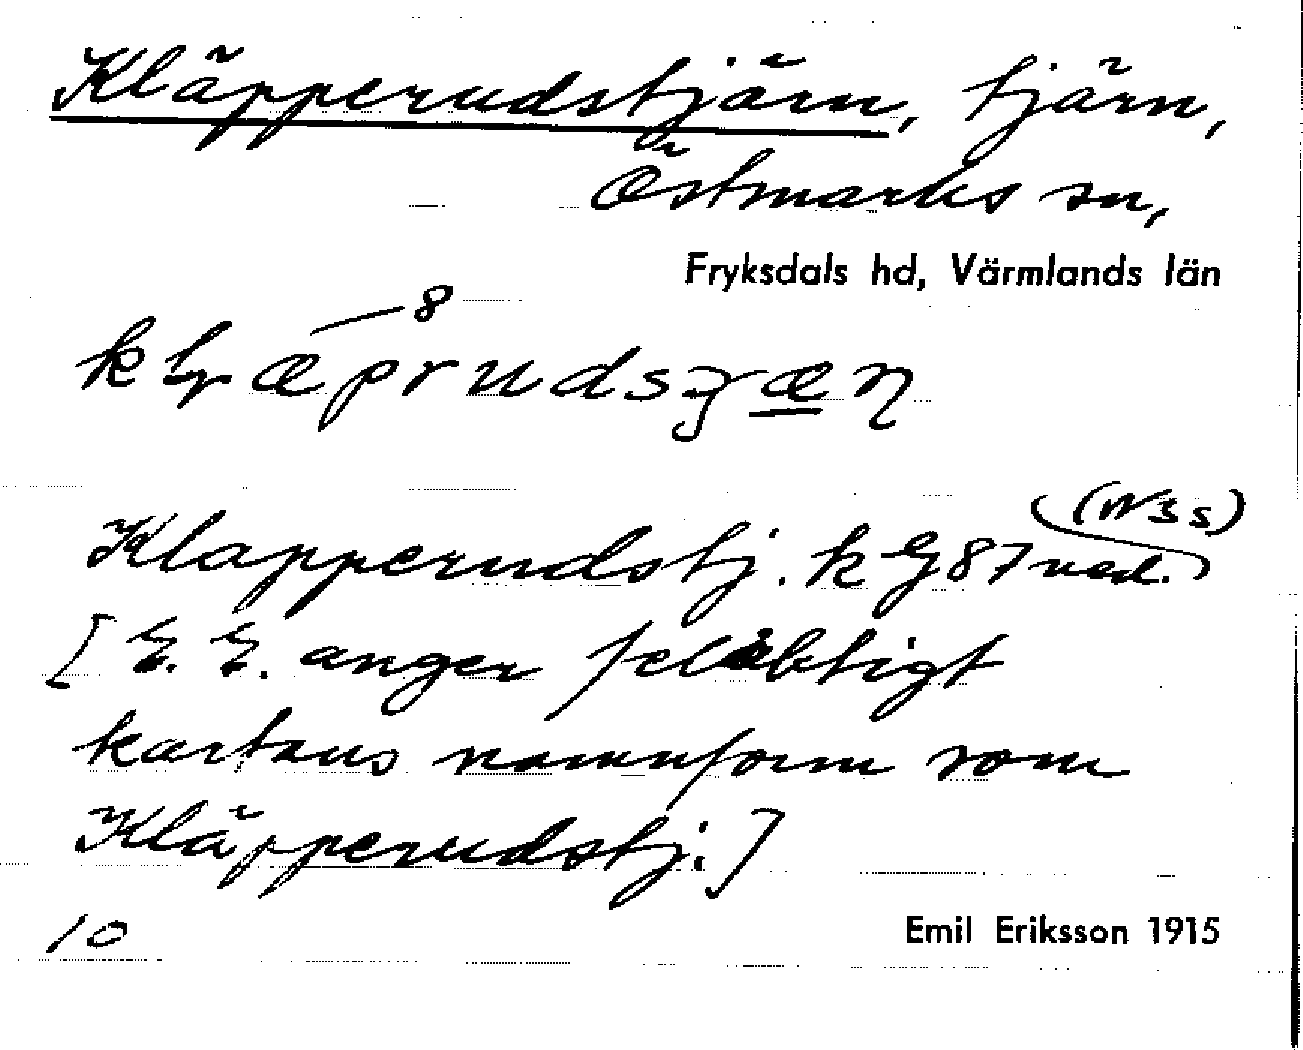 Kläpperudstjärn, tjärn,
Östmarks sn,
Fryksdals hd, Värmlands län
Klapperudstj. k G 87 ned.
(NSs)
[E. E. anger felaktigt
kartans namnform som
Kläpperudstj.]
10 Emil Eriksson 1915